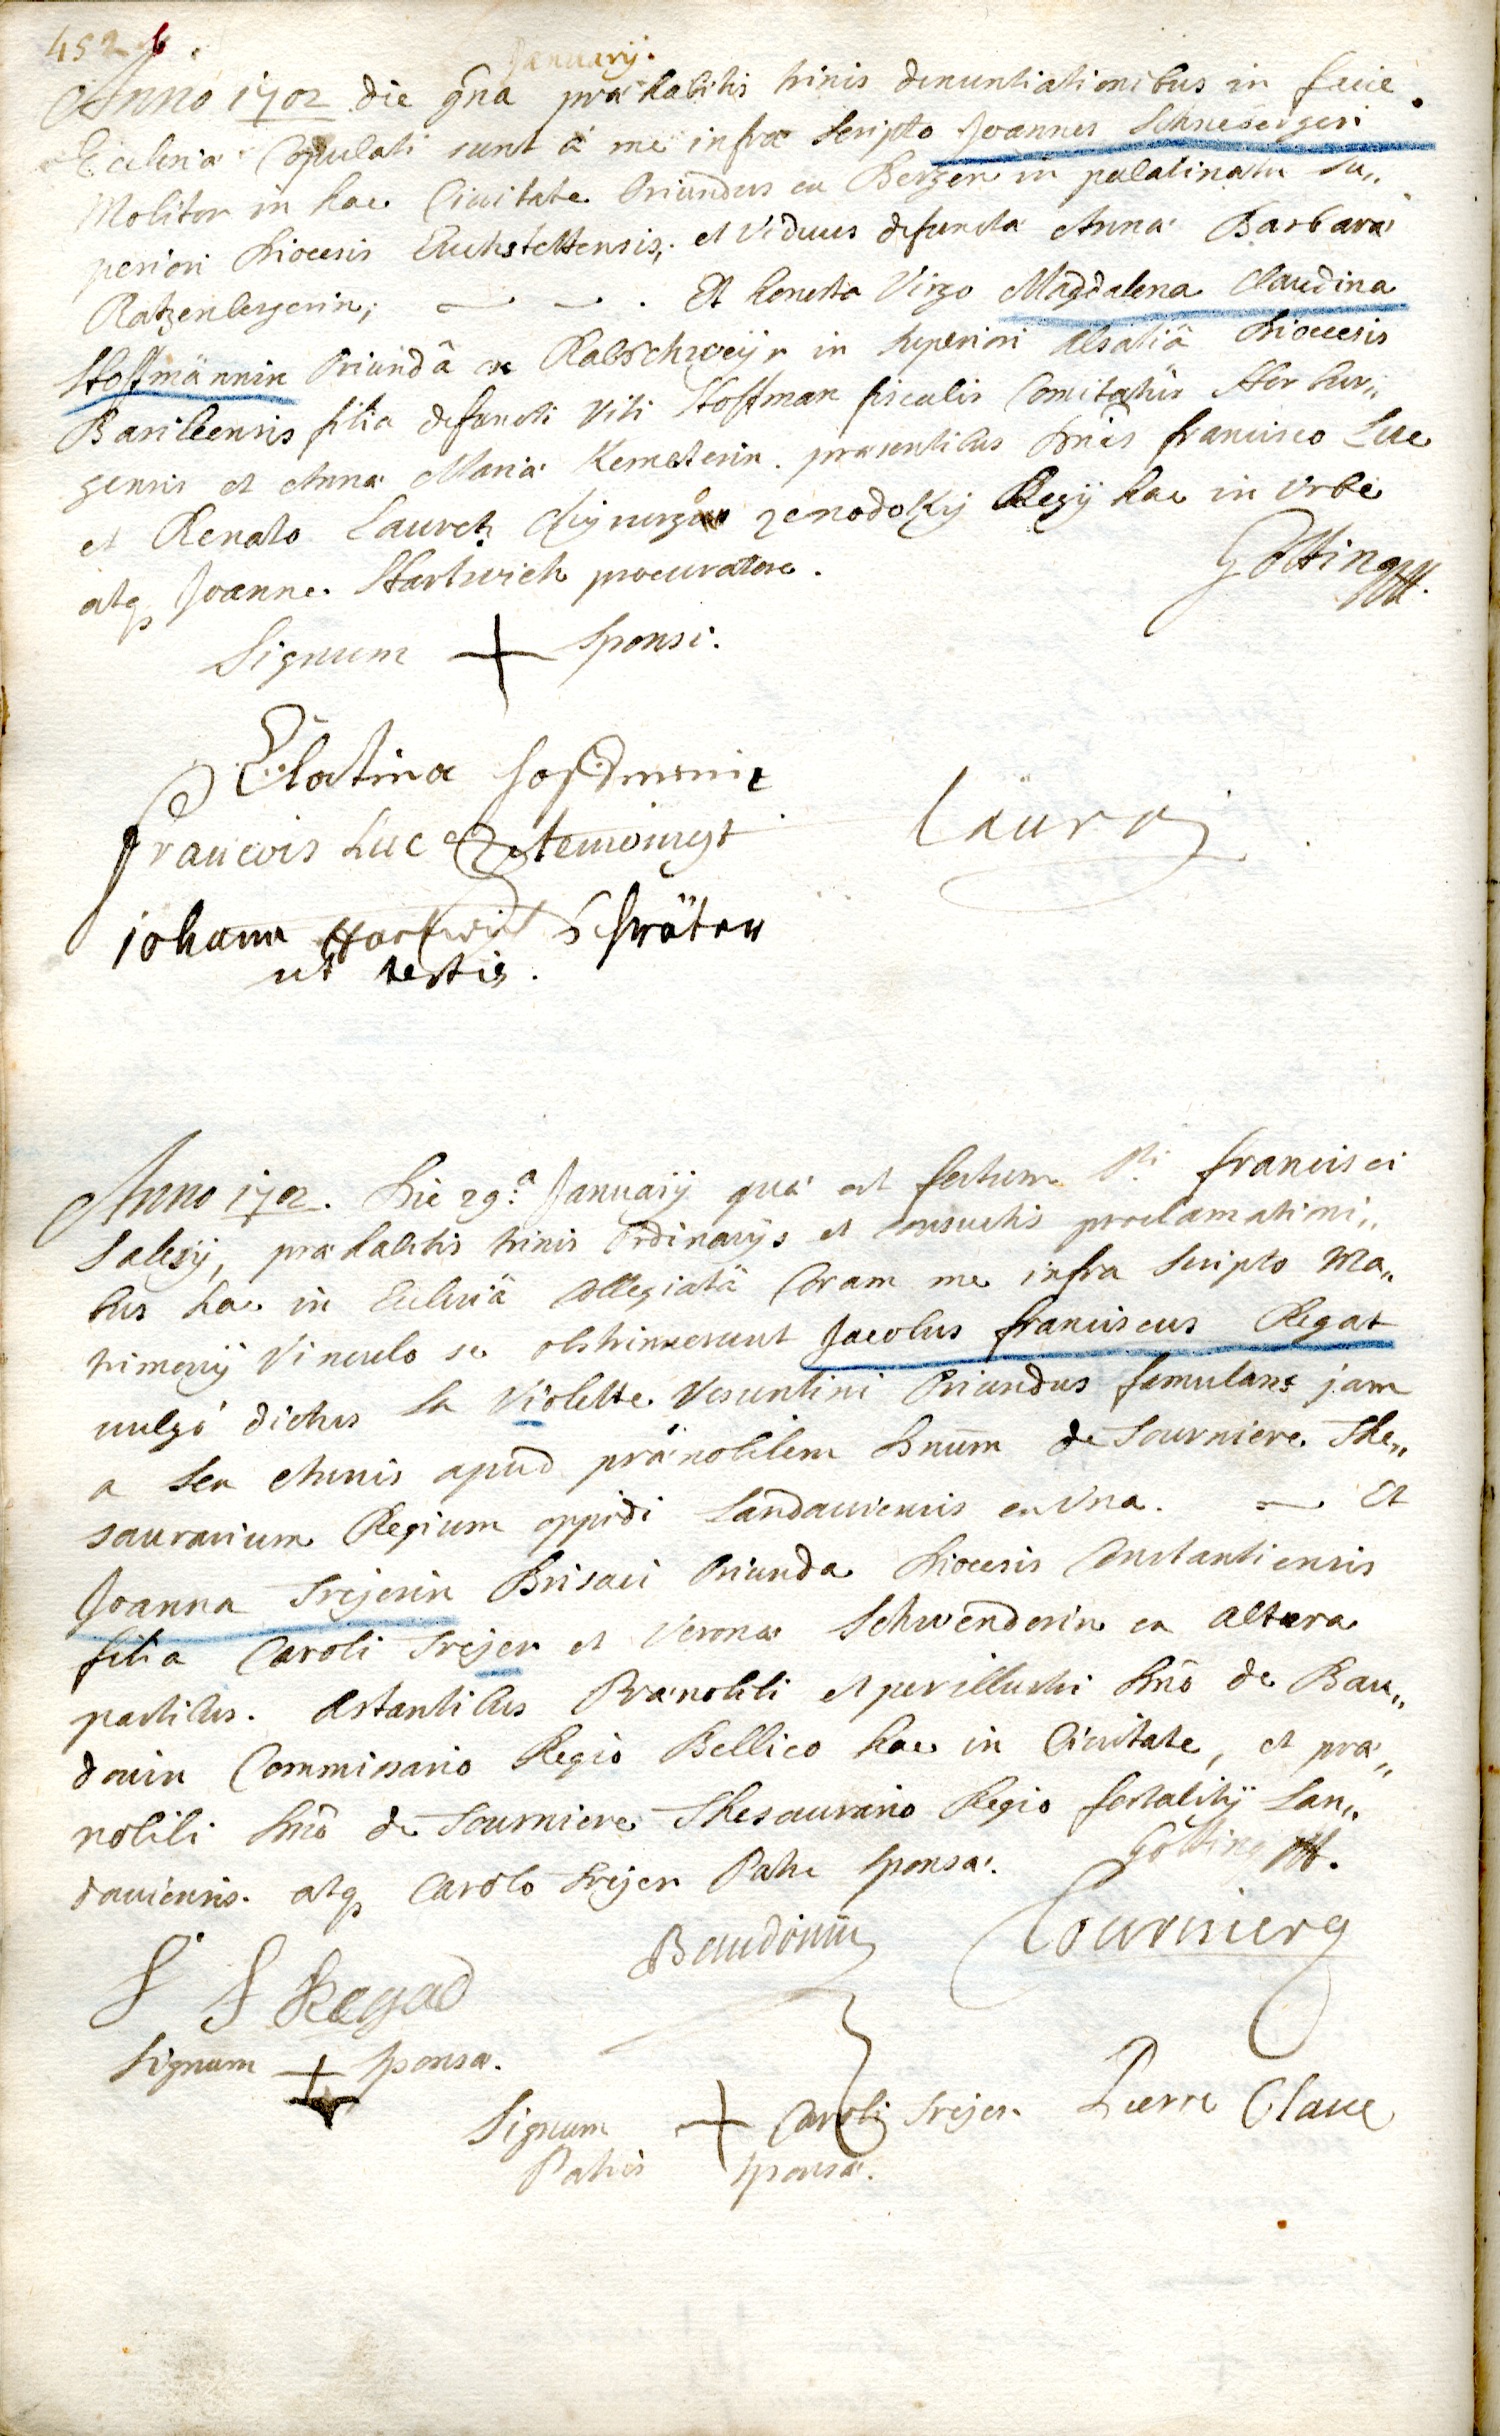 452
January.
Anno 1702 die 9na præhabitis trinis denuntiationibus in facie
Ecclesiæ Copulati sunt à me infra scripto Joannes Schneberger
Molitor in hac Civitate Oriundus ex Berzen in palatinatu su„
periori Diocesis Euchstettensis, et Viduus defunctæ Annæ Barbaræ
Ratzenbergerin; — — . Et honesta Virgo Magdalena Claudina
Hoffmännin Oriundâ ex Rabschweijr in superiori Alsatiâ Diocesis
Basileensis filia defuncti Viti Hoffman fiscalis Comitatûs Horbur„
gensis et Annæ Mariæ Kembterin. præsentibus Dnis francisco Luc
et Renato Lauretz Chyrurgo xenodoxij Regij hac in Urbe
atq Joanne Hartwich procuratore.
Götting
Signum + Sponsi.
Clatina
francois Luc temoingt
Lauraj
johann Hartwich Schräter
ut testis.
Anno 1702. Die 29.a Januarij quâ est festum Sti francisci
Salesij, præhabitis trinis Ordinarijs et consuetis proclamationi„
bus hac in Ecclesiâ Collegiatâ Coram me infra scripto Ma„
trimonij Vinculo se obstrinxerunt Jacobus franciscus Regat
vulgò dictus La Violette Vesuntini Oriundus famulans jam
a sex Annis apud prænobilem Dnum de Tourniere The„
saurarium Regium oppidi Landaviensis ex Una. — Et
Joanna Trejerin Brisaci Oriunda Diocesis Constantiensis
filia Caroli Trejer et Veronæ Schwenderin ex altera
partibus. Astantibus Prænobili et perillustri Dno de Bau„
douin Commissario Regio Bellico hac in Civitate, et præ„
nobili Dno de Tourniere Thesaurario Regio fortalitij Lan„
daviensis. atq Carolo Trejer Patre Sponsæ. Götting
J f Regad Baudouin Tourniere
Signum + Sponsæ.
Signum + Caroli Trejer Pierre Claue
Patris Sponsæ.